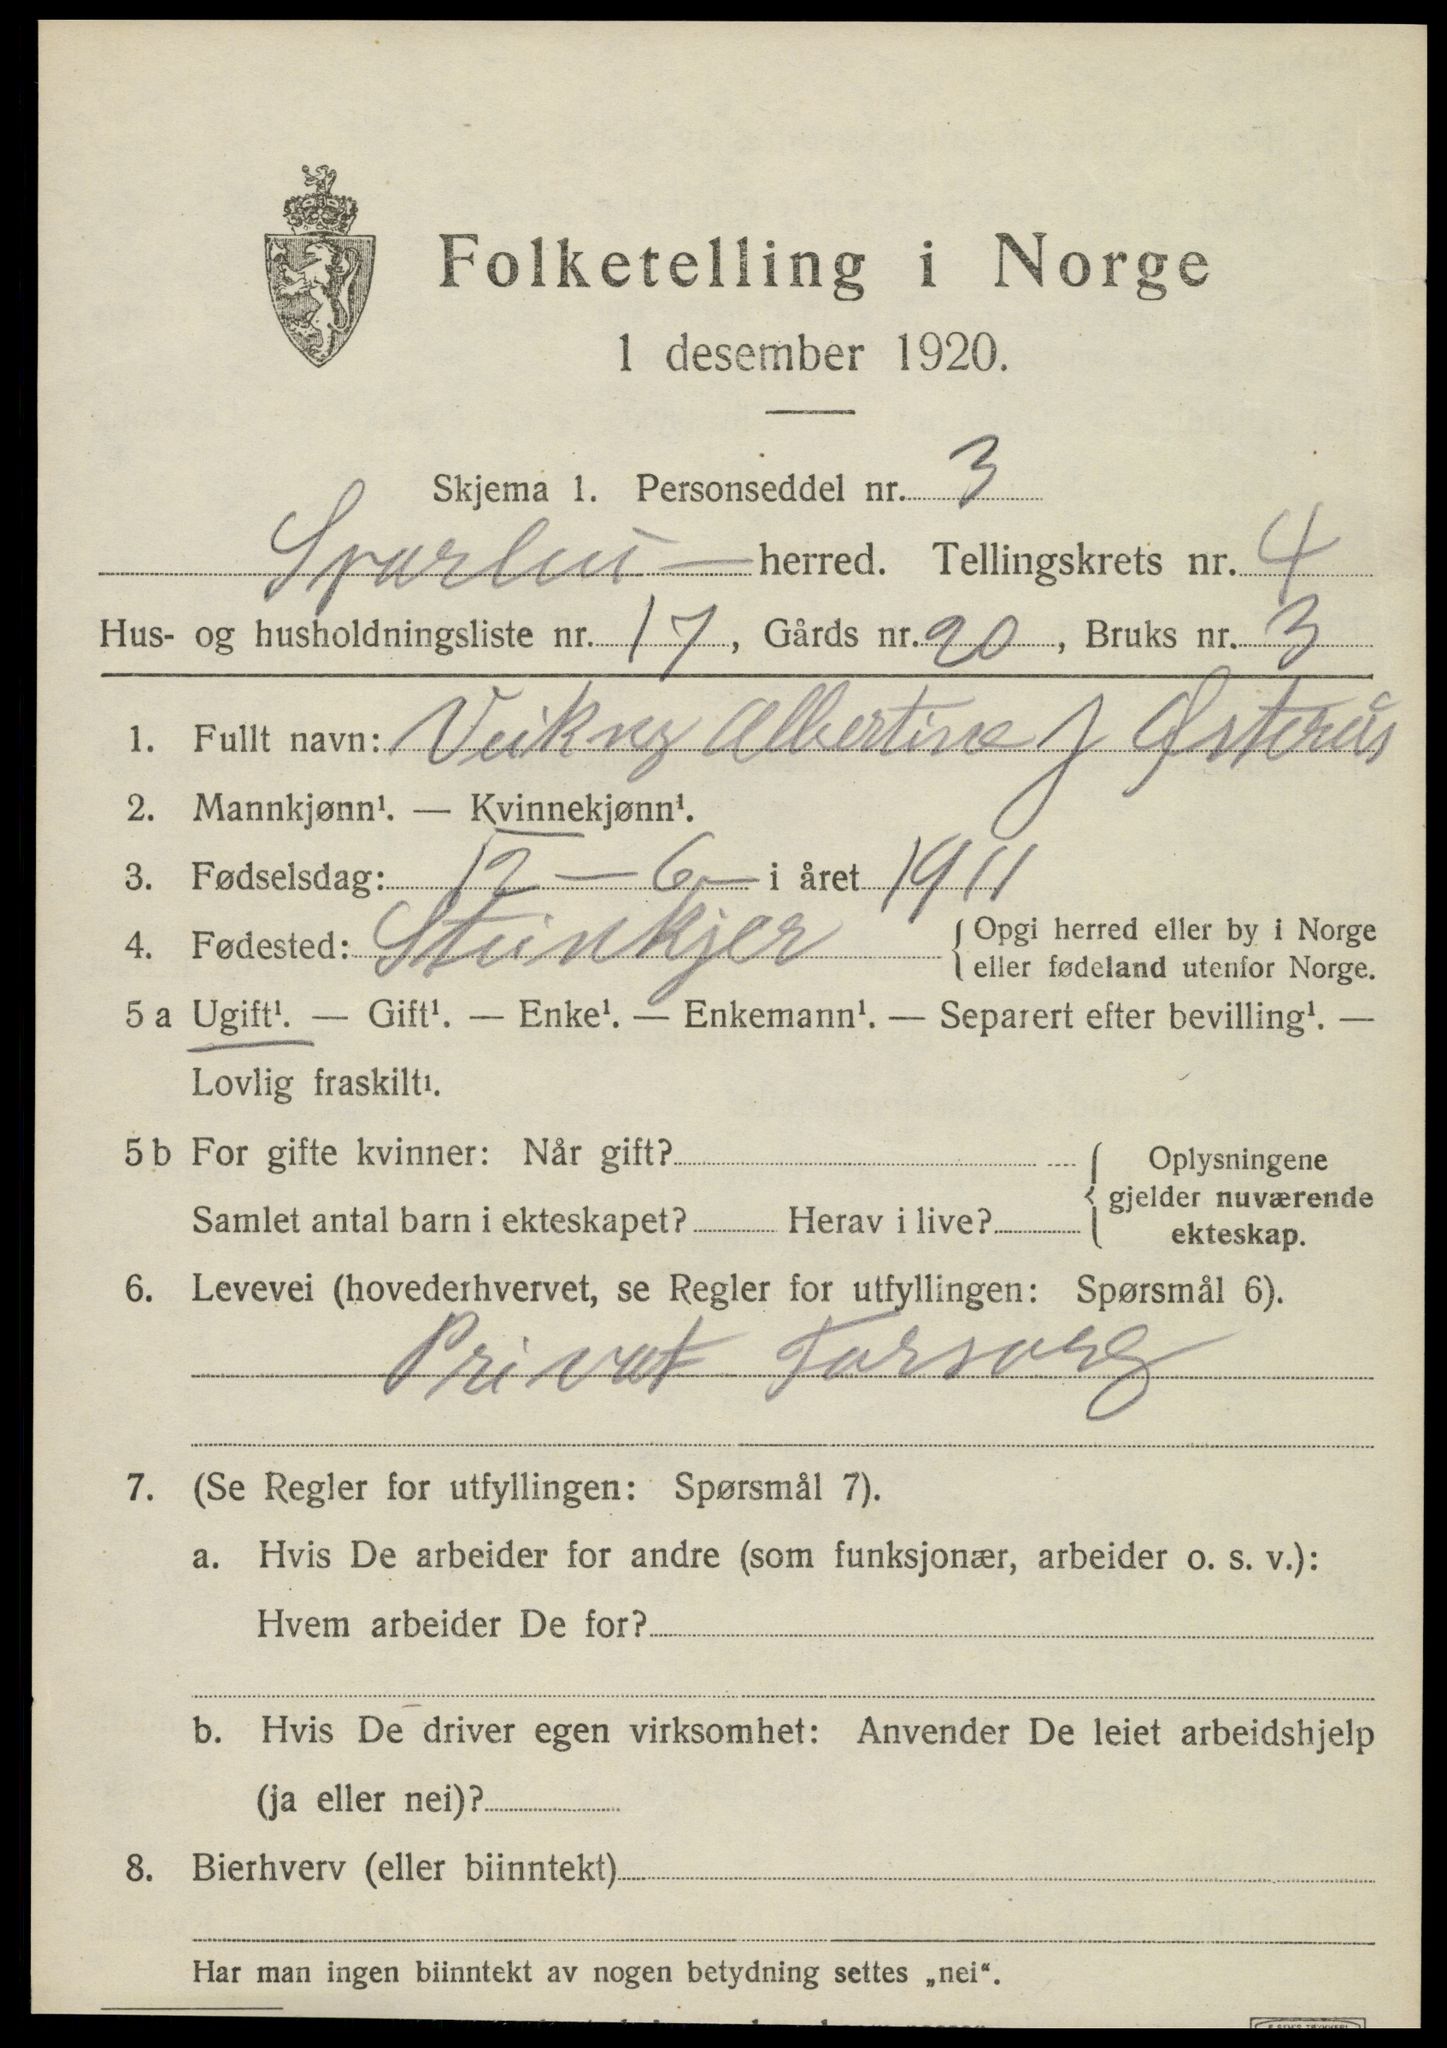 Folketelling i Norge
1 desember 1920.
Skjema 1. Personseddel nr. 3
Sparbu herred. Tellingskrets nr. 4
Hus- og husholdningsliste nr. 17, Gårds nr. 20, Bruks nr. 3
1. Fullt navn: Albertine J Østerås
2. Mannkjønn¹. — Kvinnekjønn¹.
3. Fødselsdag: 12 – 6 – i året 1911
4. Fødested: Steinkjer {Opgi herred eller by i Norge
eller fødeland utenfor Norge.
5 a Ugift¹. — Gift¹. — Enke¹. — Enkemann¹. — Separert efter bevilling¹. —
Lovlig fraskilt¹.
5 b For gifte kvinner: Når gift? { Oplysningene
gjelder nuværende
Samlet antal barn i ekteskapet? Herav i live?
ekteskap.
6. Levevei (hovederhvervet, se Regler for utfyllingen: Spørsmål 6).
Privat Forsorg
7. (Se Regler for utfyllingen: Spørsmål 7).
a. Hvis De arbeider for andre (som funksjonær, arbeider o. s. v.):
Hvem arbeider De for?
b. Hvis De driver egen virksomhet: Anvender De leiet arbeidshjelp
(ja eller nei)?
8. Bierhverv (eller biinntekt)
Har man ingen biinntekt av nogen betydning settes „nei“.